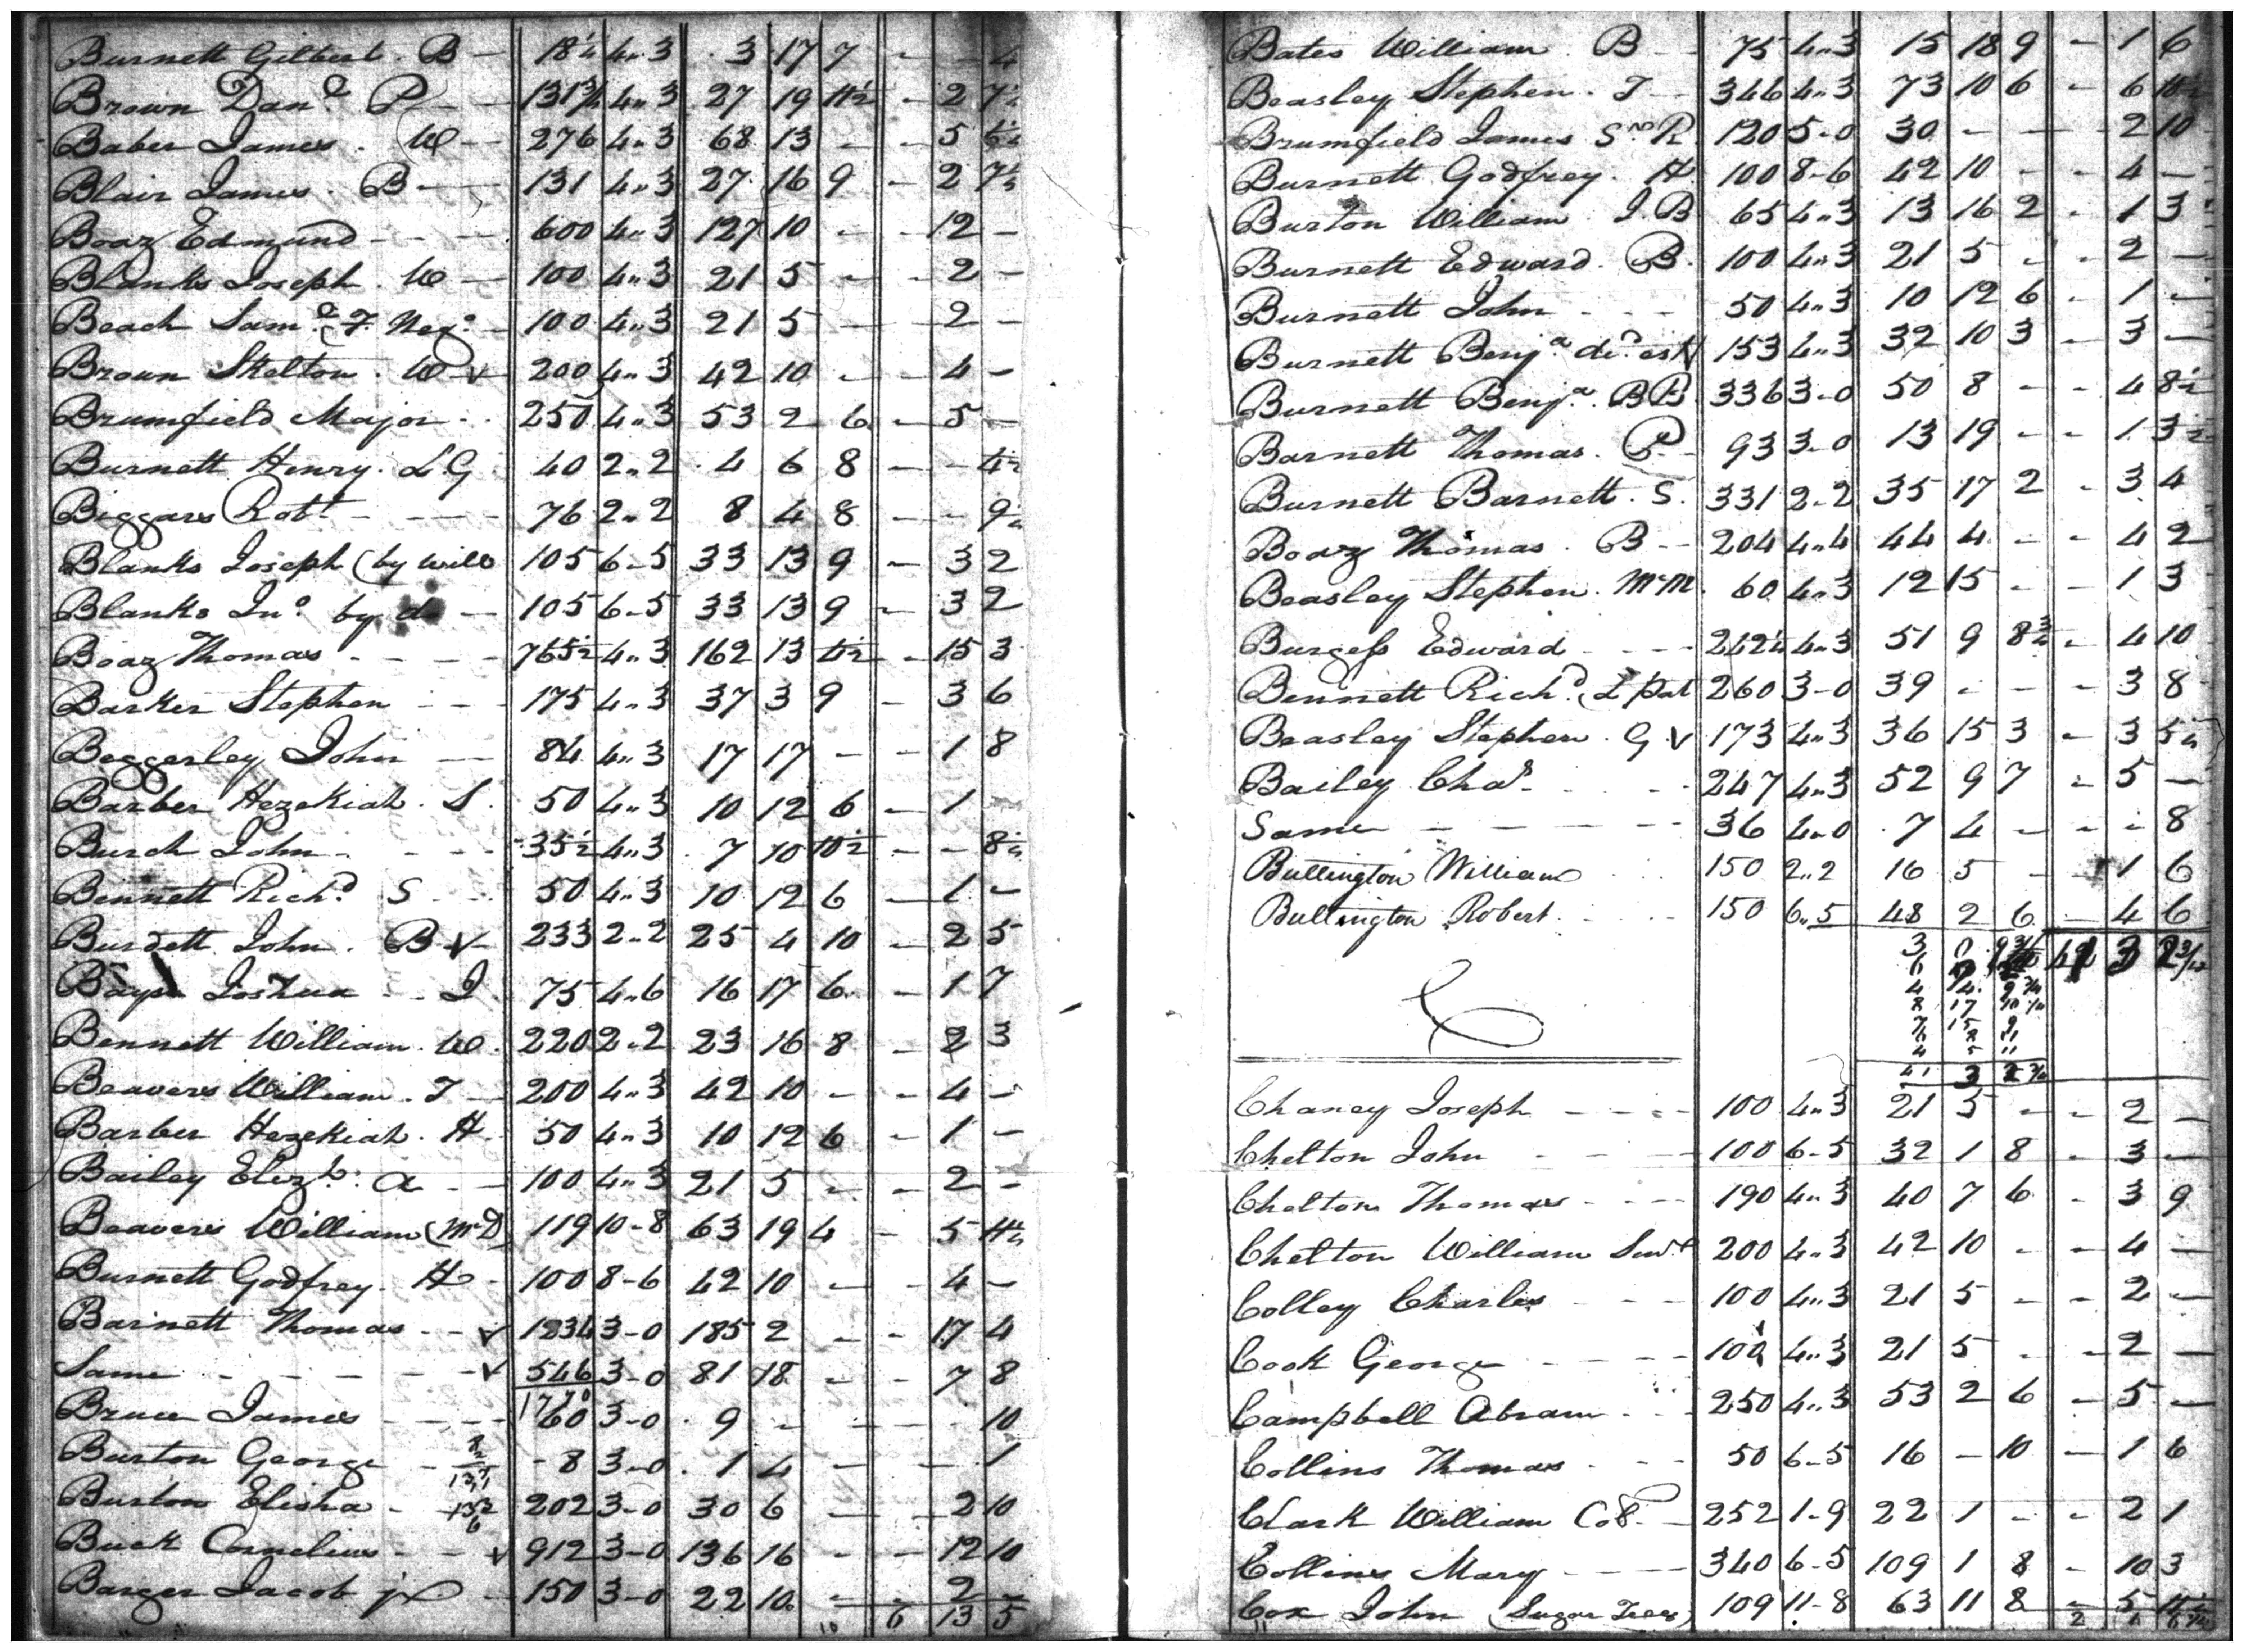 Burnett Gilbert. B — 18¼ 4.. 3 3 17 7 - - 4
Brown Danl P — 131¾ 4.. 3 27 19 11½ - 2 7½
Baber James. W — 276 4.. 3 68 13 - - 5 6½
Blair James. B — 131 4.. 3 27 16 9 - 2 7½
Boaz Edmund - - - 600 4.. 3 127 10 - - 12 -
Blanks Joseph. W — 100 4.. 3 21 5 - - 2 -
Beach Saml (F. Nego — 100 4.. 3 21 5 - - 2 -
Brown Skelton. W v 200 4.. 3 42 10 - - 4 -
Brumfield Major - - 250 4.. 3 53 2 6 - 5 -
Burnett Henry. L.G 40 2.. 2 4 6 8 - - 4½
Biggars Robt - - - 76 2.. 2 8 4 8 - - 9
Blanks Joseph (by will 105 6-5 33 13 9 - 3 2
Blanks Jno by do — 105 6-5 33 13 9 - 3 2
Boaz Thomas - - - 765½ 4.. 3 162 13 4½ - 15 3
Barker Stephen - - - 175 4.. 3 37 3 9 - 3 6
Beggerley John — 84 4.. 3 17 17 - - 1 8
Barber Hezekiah. S. 50 4.. 3 10 12 6 - 1 -
Burch John - - - 35½ 4.. 3 7 10 10½ - - 8½
Bennett Richd S - - 50 4.. 3 10 12 6 - 1 -
Burdett John. B v 233 2.. 2 25 4 10 - 2 5
Bays Joshua - - J. 75 4.. 6 16 17 6 - 1 7
Bennett William. W. 220 2.. 2 23 16 8 - 2 3
Beavers William. T — 200 4.. 3 42 10 - - 4 -
Barber Hezekiah. H. 50 4.. 3 10 12 6 - 1 -
Bailey Elizh: a - - 100 4.. 3 21 5 - - 2 -
Beavers William (McD) 119 10-8 63 19 4 - 5
Burnett Godfrey. H - 100 8-6 42 10 - - 4 -
Barnett Thomas - - v 1234 3-0 185 2 - - 17 4
Same - - - - v 546 3-0 81 18 - - 7 8
Bruce James - - - 60 3-0 9 - - - 10
Burton George - 8 3-0 1 4 - - - 1
Burton Elisha - 202 3-0 30 6 - - 2 10
Buck Cornelius - - v 912 3-0 136 16 - - 12 10
Barger Jacob jr - 150 3-0 22 10 - - 2 -
6 13 5
Bates William. B - - 75 4.. 3 15 18 9 - 1 6
Beasley Stephen. T — 346 4.. 3 73 10 6 - 6 10½
Brumfield James Snr R. 120 5-0 30 - - - 2 10
Burnett Godfrey. H 100 8-6 42 10 - - 4 -
Burton William. J.B 65 4.. 3 13 16 2 - 1 3
Burnett Edward. B. 100 4.. 3 21 5 - - 2 -
Burnett John - - - 50 4.. 3 10 12 6 - 1 -
Burnett Benja decd est v 153 4.. 3 32 10 3 - 3 -
Burnett Benja. BB. 336 3-0 50 8 - - 4 8½
Barnett Thomas. P - - 93 3-0 13 19 - - 1 3½
Burnett Barnett. S. 331 2-2 35 17 2 - 3 4
Boaz Thomas. B - - 204 4.. 4 44 4 - - 4 2
Beasley Stephen. McM. 60 4.. 3 12 15 - - 1 3
Burgess Edward - - - 242¼ 4.. 3 51 9 8¾ - 4 10
Bennett Richd. (L pat 260 3-0 39 - - - 3 8
Beasley Stephen. G. v 173 4.. 3 36 15 3 - 3 5
Bailey Chas - - - 247 4.. 3 52 9 7 - 5 -
Same - - - - 36 4.. 0 7 4 - - - 8
Bullington William - - - 150 2.. 2 16 5 - - 1 6
Bullington Robert - - - 150 6.. 5 48 2 6 - 4 6
41 3 2¾
4 14 9¾
8 17 10¼
7 15 9
4 5 11
41 3 2¾
Chaney Joseph - - - 100 4.. 3 21 5 - - 2 -
Chelton John - - - 100 6-5 32 1 8 - 3 -
Chelton Thomas - - - 190 4.. 3 40 7 6 - 3 9
Chelton William 200 4.. 3 42 10 - - 4 -
Colley Charles - - - 100 4.. 3 21 5 - - 2 -
Cook George - - - 100 4.. 3 21 5 - - 2 -
Campbell Abram - - 250 4.. 3 53 2 6 - 5 -
Collins Thomas - - - 50 6-5 16 - 10 - 1 6
Clark William 252 1-9 22 1 - - 2 1
Collins Mary - - - 340 6-5 109 1 8 - 10 3
Cox John (Sugar Trees) 109 11-8 63 11 8 - 5